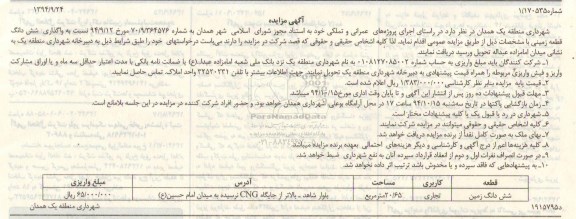 شماره۱/۱۷۰۵۳۵
۱۳۹۴/۹/۲۴
آگهی مزایده
شهرداری منطقه یک همدان در نظر دارد در راستای اجرای پروژه‌های عمرانی و تملکی خود به استناد مجوز شورای اسلامی شهر همدان به شماره ۷۰/۹/۳۶۴۵۷۶ مورخ ۹۴/۹/۱۲ نسبت به واگذاری شش دانگ
قطعه زمینی با مشخصات ذیل از طریق مزایده عمومی اقدام نماید. لذا کلیه اشخاص حقیقی و حقوقی که قصد شرکت در مزایده را دارند می‌بایست درخواستهای خود را طبق شرایط ذیل به دبیرخانه شهرداری منطقه یک به
نشانی میدان امامزاده عبداله تحویل ورسید دریافت نمایند.
۱ـ شرکت کنندگان باید مبلغ واریزی به حساب شماره ۰۱۰۸۱۲۷۰۸۵۰۰۲ به نام شهرداری منطقه یک نزد بانک ملی شعبه امامزاده عبداله(ع) یا ضمانت نامه بانکی با مدت اعتبار حداقل سه ماه و یا اوراق مشارکت
واریز و فیش واریزی مربوطه را همراه فرم قیمت پیشنهادی به دبیرخانه شهرداری منطقه یک تحویل نمایند. جهت اطلاعات بیشتر با تلفن ۳۲۵۲۰۲۳۱ واحد املاک تماس حاصل نمایید.
۲ـ قیمت پایه مزایده بنابر نظر کارشناسی ۱/۳۸۳/۰۰۰/۰۰۰ ریال اعلام شده است.
۳ـ مهلت قبول پیشنهادات ده روز پس از انتشار این آگهی و تا پایان وقت اداری مورخ ۹۴/۱۰/۱۵ میباشد.
۴ـ زمان بازگشایی پاکتها در تاریخ سه‌شنبه ۹۴/۱۰/۱۵ ساعت ۱۷ در محل آرامگاه بوعلی شهرداری همدان خواهد بود و حضور افراد شرکت کننده در مزایده در این جلسه بلامانع است.
۵ـ شهرداری در رد یا قبول یک یا کلیه پیشنهادات مختار است.
۶ـ کلیه اشخاص حقیقی و حقوقی میتوانند در مزایده شرکت نمایند.
۷ـ بهای ملک به صورت کامل نقداً از برنده مزایده دریافت خواهد شد.
۸ـ کلیه هزینه‌ها اعم از درج آگهی و کارشناسی و دیگر هزینه‌های احتمالی بعهده برنده مزایده میباشد.
۹ـ در صورت انصراف نفرات اول و دوم از انعقاد قرارداد سپرده آنان به نفع شهرداری ضبط خواهد شد.
۱۰ـ به پیشنهادهایی که فاقد سپرده و یا مخدوش باشد ترتیب اثر داده نخواهد شد.
قطعه کاربری مساحت آدرس مبلغ واریزی
شش دانگ زمین تجاری ۲۰/۶۵مترمربع بلوار شاهد ـ بالاتر از جایگاه CNG نرسیده به میدان امام حسین(ع) ۶۵/۰۰۰/۰۰۰ ریال
شهرداری منطقه یک همدان
۱۹۱۵۷۹۵د